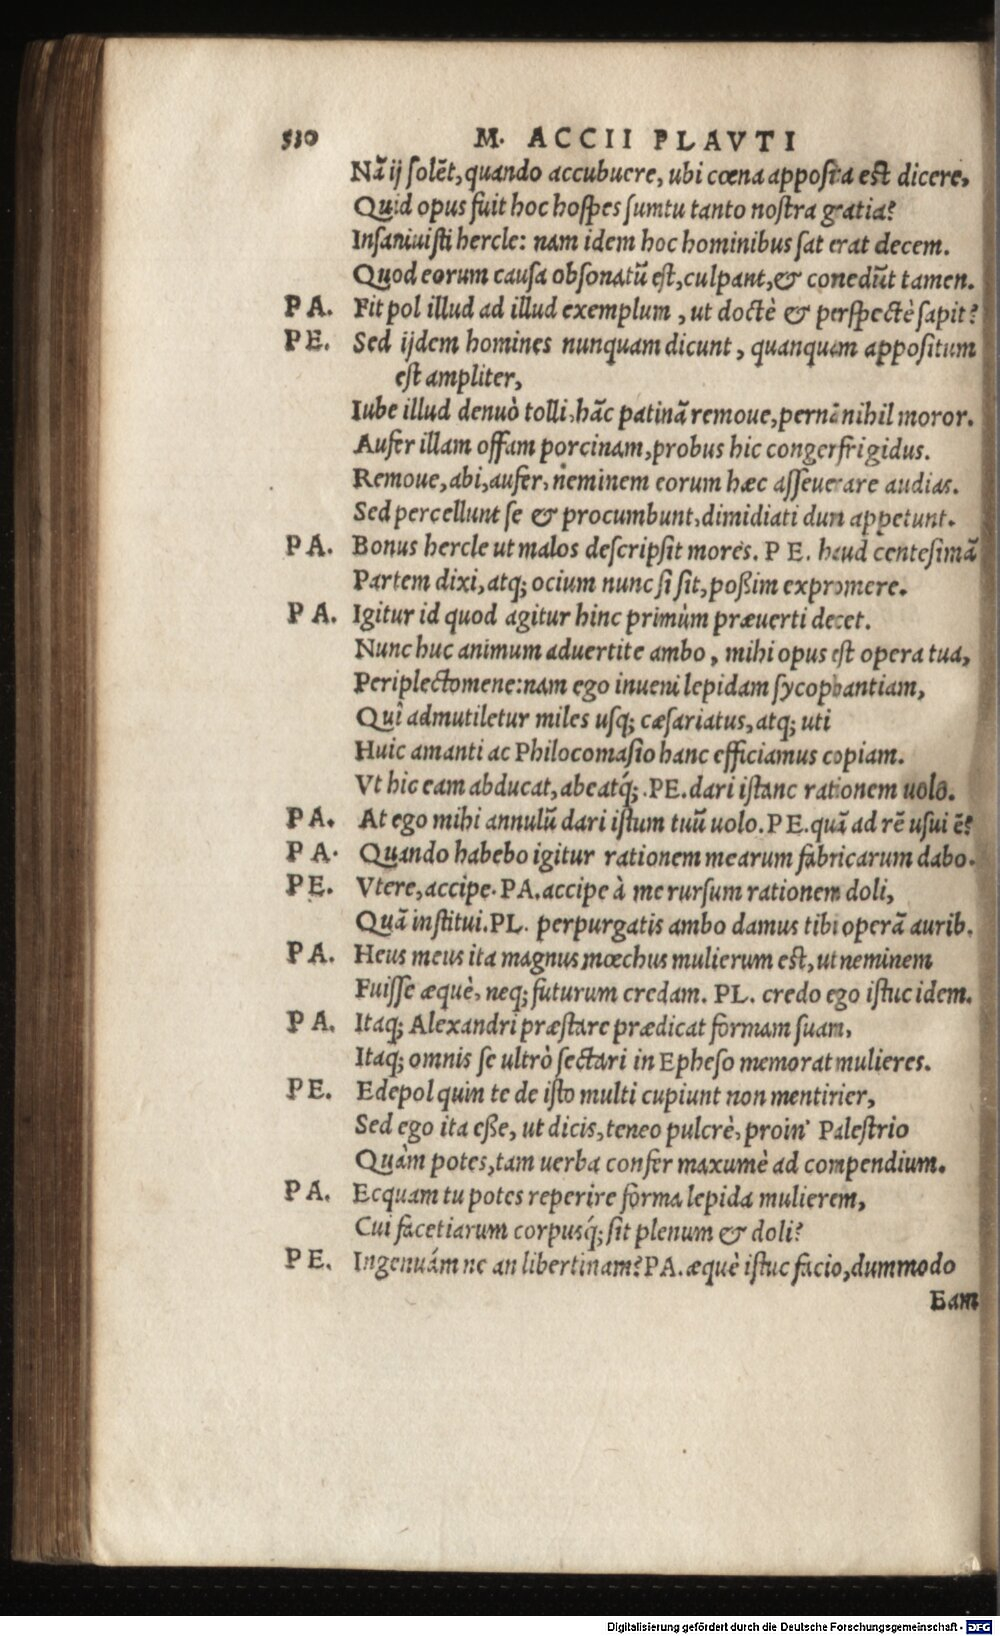 530 M. ACCII PLAVTI
Nā ij solēt, quando accubuere, ubi cœna apposita est dicere,
Quid opus fuit hoc hospes sumtu tanto nostra gratia?
Insaniuisti hercle: nam idem hoc hominibus sat erat decem.
Quod eorum causa obsonatū est, culpant, & conedūt tamen.
PA. Fit pol illud ad illud exemplum, ut doctè & perspectè sapit?
PE. Sed ijdem homines nunquam dicunt, quanquam appositum
est ampliter,
Iube illud denuò tolli, hāc patinā remoue, pernā nihil moror.
Aufer illam offam porcinam, probus hic conger frigidus.
Remoue, abi, aufer, neminem eorum hæc asseuerare audias.
Sed percellunt se & procumbunt, dimidiati dum appetunt.
PA. Bonus hercle ut malos descripsit mores. PE. haud centesimā
Partem dixi, atq; ocium nunc si sit, poßim expromere.
PA. Igitur id quod agitur hinc primùm præuerti decet.
Nunc huc animum aduertite ambo, mihi opus est opera tua,
Periplectomene: nam ego inueni lepidam sycophantiam,
Quî admutiletur miles usq; cæsariatus, atq; uti
Huic amanti ac Philocomasio hanc efficiamus copiam.
Vt hic eam abducat, abeatq́;. PE. dari istanc rationem uolo.
PA. At ego mihi annulū dari istum tuū uolo. PE. quā ad rē usui ē?
PA. Quando habebo igitur rationem mearum fabricarum dabo.
PE. Vtere, accipe. PA. accipe à me rursum rationem doli,
Quā institui. PL. perpurgatis ambo damus tibi operā aurib.
PA. Heus meus ita magnus mœchus mulierum est, ut neminem
Fuisse æquè, neq; futurum credam. PL. credo ego istuc idem.
PA. Itaq; Alexandri præstare prædicat formam suam,
Itaq; omnis se ultrò sectari in Epheso memorat mulieres.
PE. Edepol quin te de isto multi cupiunt non mentirier,
Sed ego ita eße, ut dicis, teneo pulcrè, proin' Palestrio
Quàm potes, tam uerba confer maxumè ad compendium.
PA. Ecquam tu potes reperire forma lepida mulierem,
Cui facetiarum corpusq́; sit plenum & doli?
PE. Ingenuám ne an libertinam? PA. æquè istuc facio, dummodo
Eam
Digitalisierung gefördert durch die Deutsche Forschungsgemeinschaft - DFG